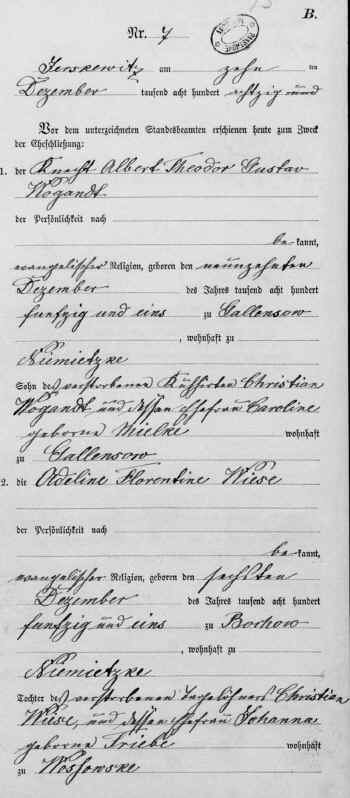 B.
Nr. 7
Jerskewitz am zehn ten
Dezember tausend acht hundert achtzig und
Vor dem unterzeichneten Standesbeamten erschienen heute zum Zweck
der Eheschließung:
1. der Knecht Albert Theodor Gustav
Wogandt
der Persönlichkeit nach
be kannt,
evangelischer Religion, geboren den neunzehnten
Dezember des Jahres tausend acht hundert
funfzig und eins zu Gallensow
, wohnhaft zu
Niemietzke
Sohn des verstorbenen Christian
Wogandt und dessen Ehefrau Caroline
geborne Mielke wohnhaft
zu Gallensow
2. die Adeline Florentine Wiese
der Persönlichkeit nach
be kannt,
evangelischer Religion, geboren den sechsten
Dezember des Jahres tausend acht hundert
funfzig und eins zu Bochow
, wohnhaft zu
Niemietzke
Tochter des verstorbenen Tagelöhners Christian
Wiese, und dessen Ehefrau Johanna
geborne Friebe wohnhaft
zu Wossowske